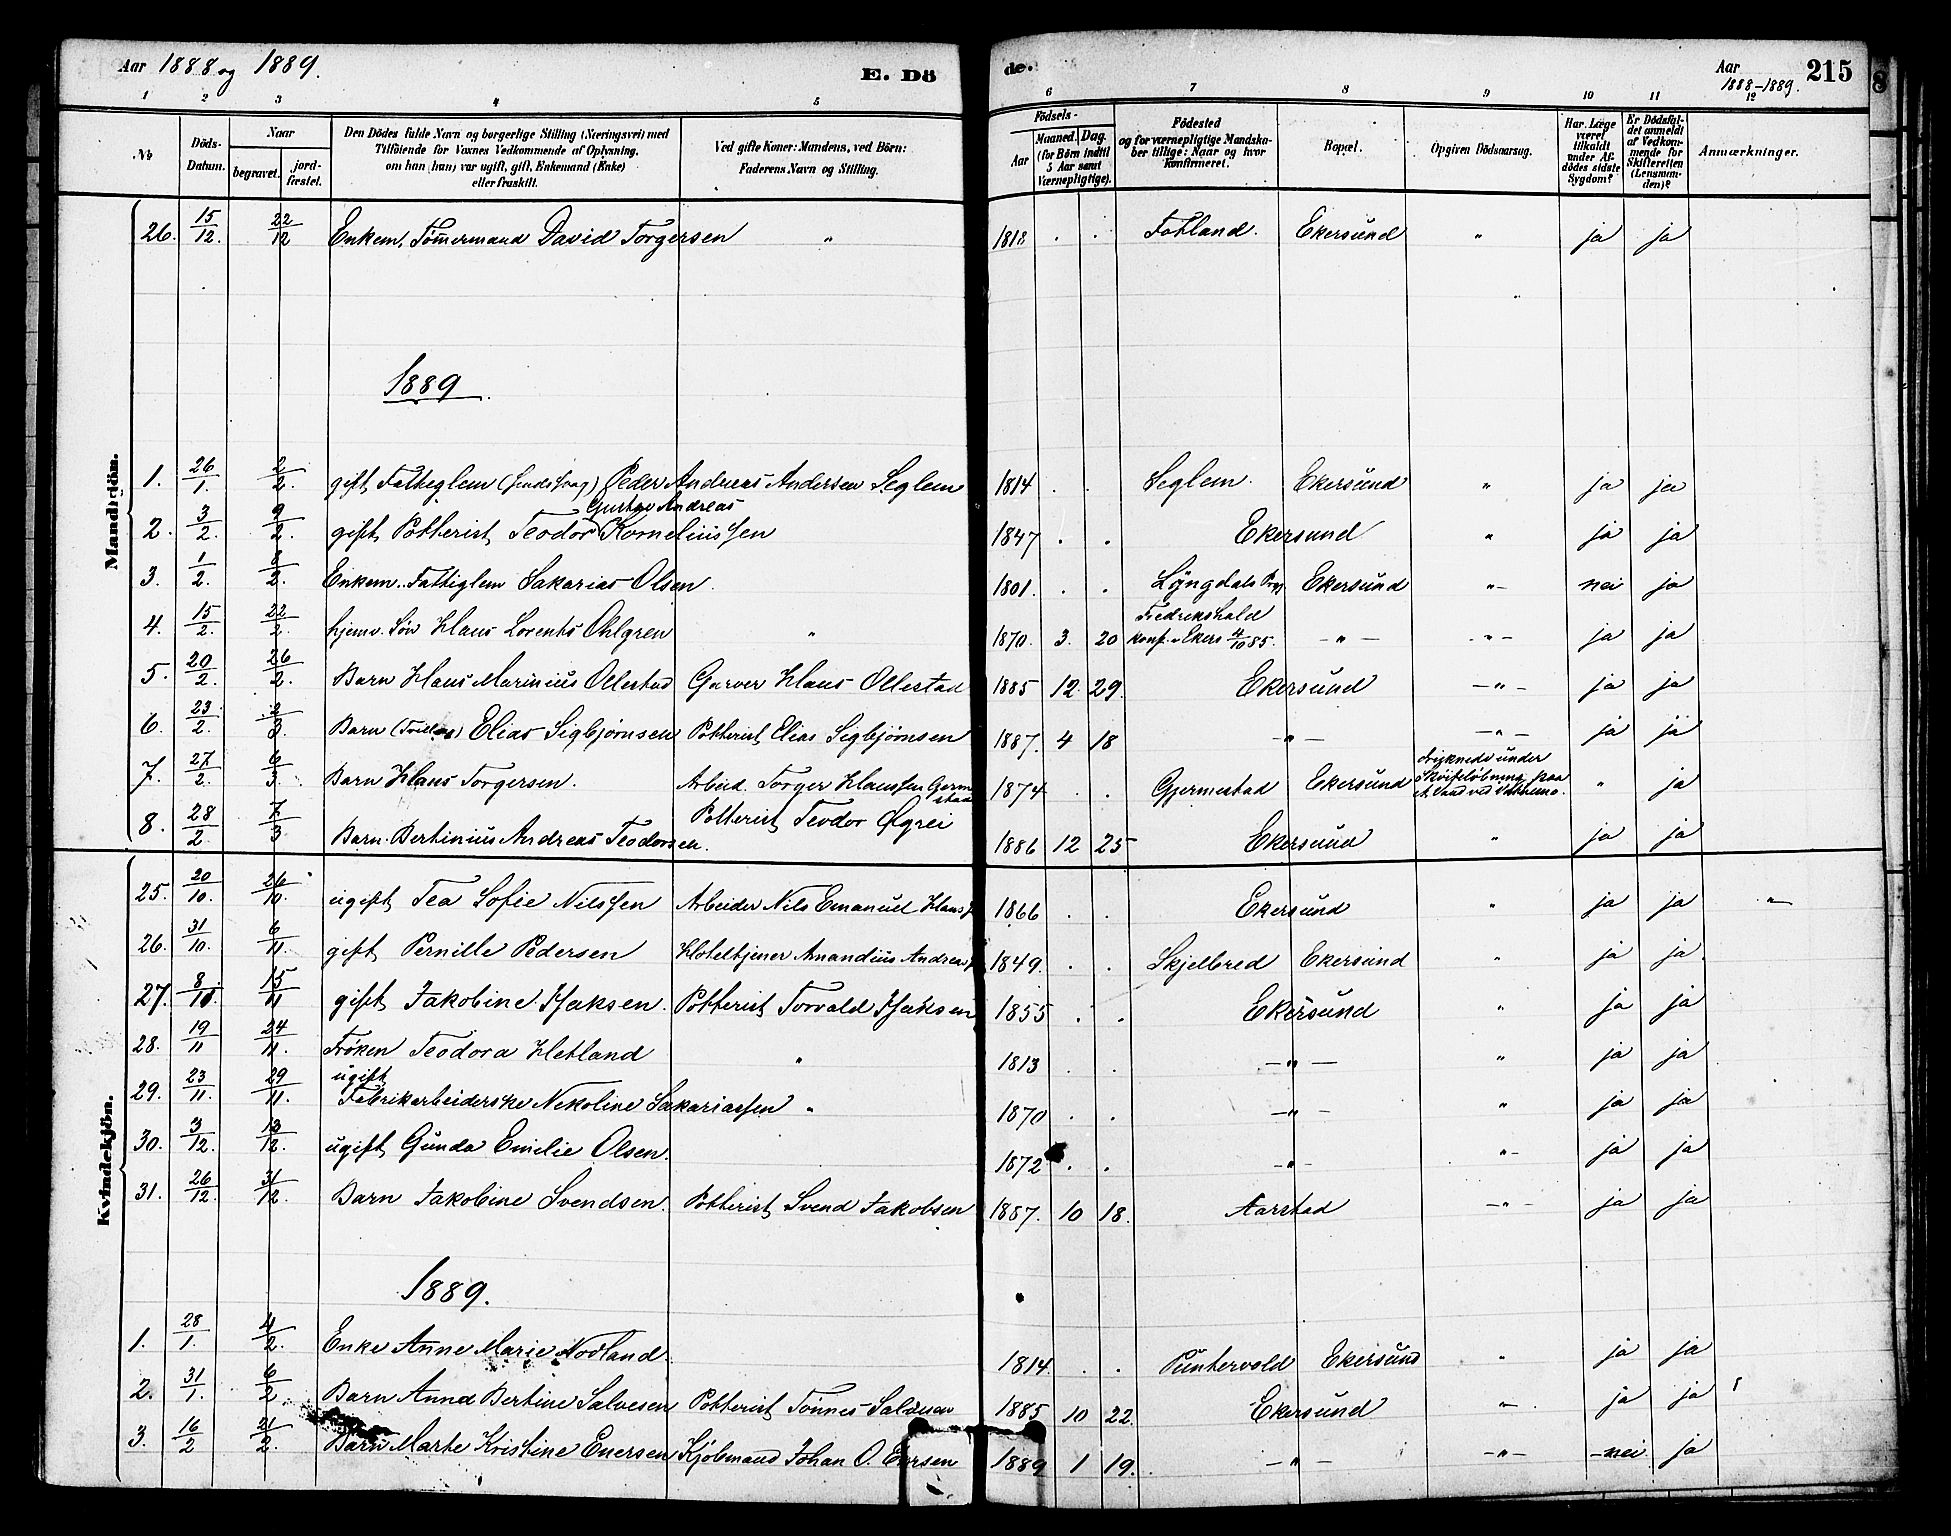 Aar 1888 og 1889.
E. Dö
de.
Aar 1888-1889.
215
1 2 3 4 5 6 7 8 9 10 11 12
No
Döds-Datum.
Naar
begravet.
jord-fæstet.
Den Dödes fulde Navn og borgerlige Stilling (Næringsvei) med
Tilföiende for Voxnes Vedkommende af Oplysning,
om han (hun) var ugift, gift, Enkemand (Enke)
eller fraskilt.
Ved gifte Koner: Mandens, ved Börn:
Faderens Navn og Stilling.
Födsels-
Aar
Maaned. Dag.
(for Börn indtil
5 Aar samt
Værnepligtige).
Födested
og for værnepligtige Mandska-
ber tillige: Naar og hvor
konfirmeret.
Bopæl.
Opgiven Dödsaarsag.
Har Læge
været
tilkaldt
under Af-
dödes sidste
Sygdom?
Er Dödsfal-
det anmeldt
af Vedkom-
mende for
Skifteretten
(Lensman-
den)?
Anmærkninger.
Mandkjön.
26. 15/12. 22/12 Enkem. Tömermand David Torgersen " 1818 . . Fotland. Ekersund " ja ja
1889.
1. 26/1. 2/2. gift Fattiglem Peder Andreas Andersen Seglem 1814 . . Seglem. Ekersund " ja ja
2. 3/2. 9/2. gift Potterist Teodor Gustav Andreas Korneliussen 1847 . . Ekersund " ja ja
3. 1/2. 8/2. Enkem. Fattiglem Sakarias Olsen. 1801. . . Lyngdals Prgj Ekersund " nei ja
4. 15/2. 22/2. hjemv. Søn Klaus Lorents Ohlgren " 1870. 3. 20 Fredrikshald konf. i Ekers 4/10 85. — " — - " - ja ja
5. 20/2. 26/2. Barn Klaus Marinius Ollestad Garver Klaus Ollestad 1885 12 29. Ekersund — " — ja ja
6. 23/2. 2/3. Barn (Tvilling) Elias Sigbjørnsen Potterist Elias Sigbjørnsen 1887. 4 18 — " — — " — ja ja
7. 27/2. 6/3. Barn Klaus Torgersen. Arbeid. Torger Klaussen Germestad 1874 . . Gjermestad Ekersund druknede under Skøiteløbning paa " ja
8. 28/2. 7/3 Barn Bertinius Andreas Teodorsen. Potterist Teodor Øgrei 1886 12 25 Ekersund " ja ja
Kvindekjön.
25. 20/10. 26/10. ugift Tea Sofie Nilssen Arbeider Nils Emanuel Klauss 1866 . . Ekersund " ja ja "
26. 31/10. 6/11. gift Pernille Pedersen Hoteltjener Amandius Andreas 1849. . . Skjelbred Ekersund " ja ja
27. 8/11. 15/11 gift Jakobine Isaksen. Potterist Torvald Isaksen 1855 . . Ekersund " ja ja
28. 19/11 24/11. Frøken Teodora Hetland " 1813 . . — " — " ja ja
29. 23/11. 29/11. ugift Fabrikarbeiderske Nekoline Sakariassen " 1870 . . — " — " ja ja
30. 3/12. 13/12. ugift Gunda Emilie Olsen. 1872 . . — " — " - ja ja
31. 26/12. 31/12. Barn Jakobine Svendsen. Potterist Svend Jakobsen 1887. 10 18. Aarstad — " — ja ja
1889.
1. 28/1. 4/2. Enke Anne Marie Nodland. 1814 . . Puntervold Ekersund " ja ja
2. 31/1. 6/2. Barn Anna Bertine Salvesen Potterist Tönnes Salvesen 1885 10 22. Ekersund " ja ja
3. 16/2 21/2. Barn Marte Kristine Enersen Kjöbmand Johan O. Enersen 1889 1 19. — " — — " — nei ja